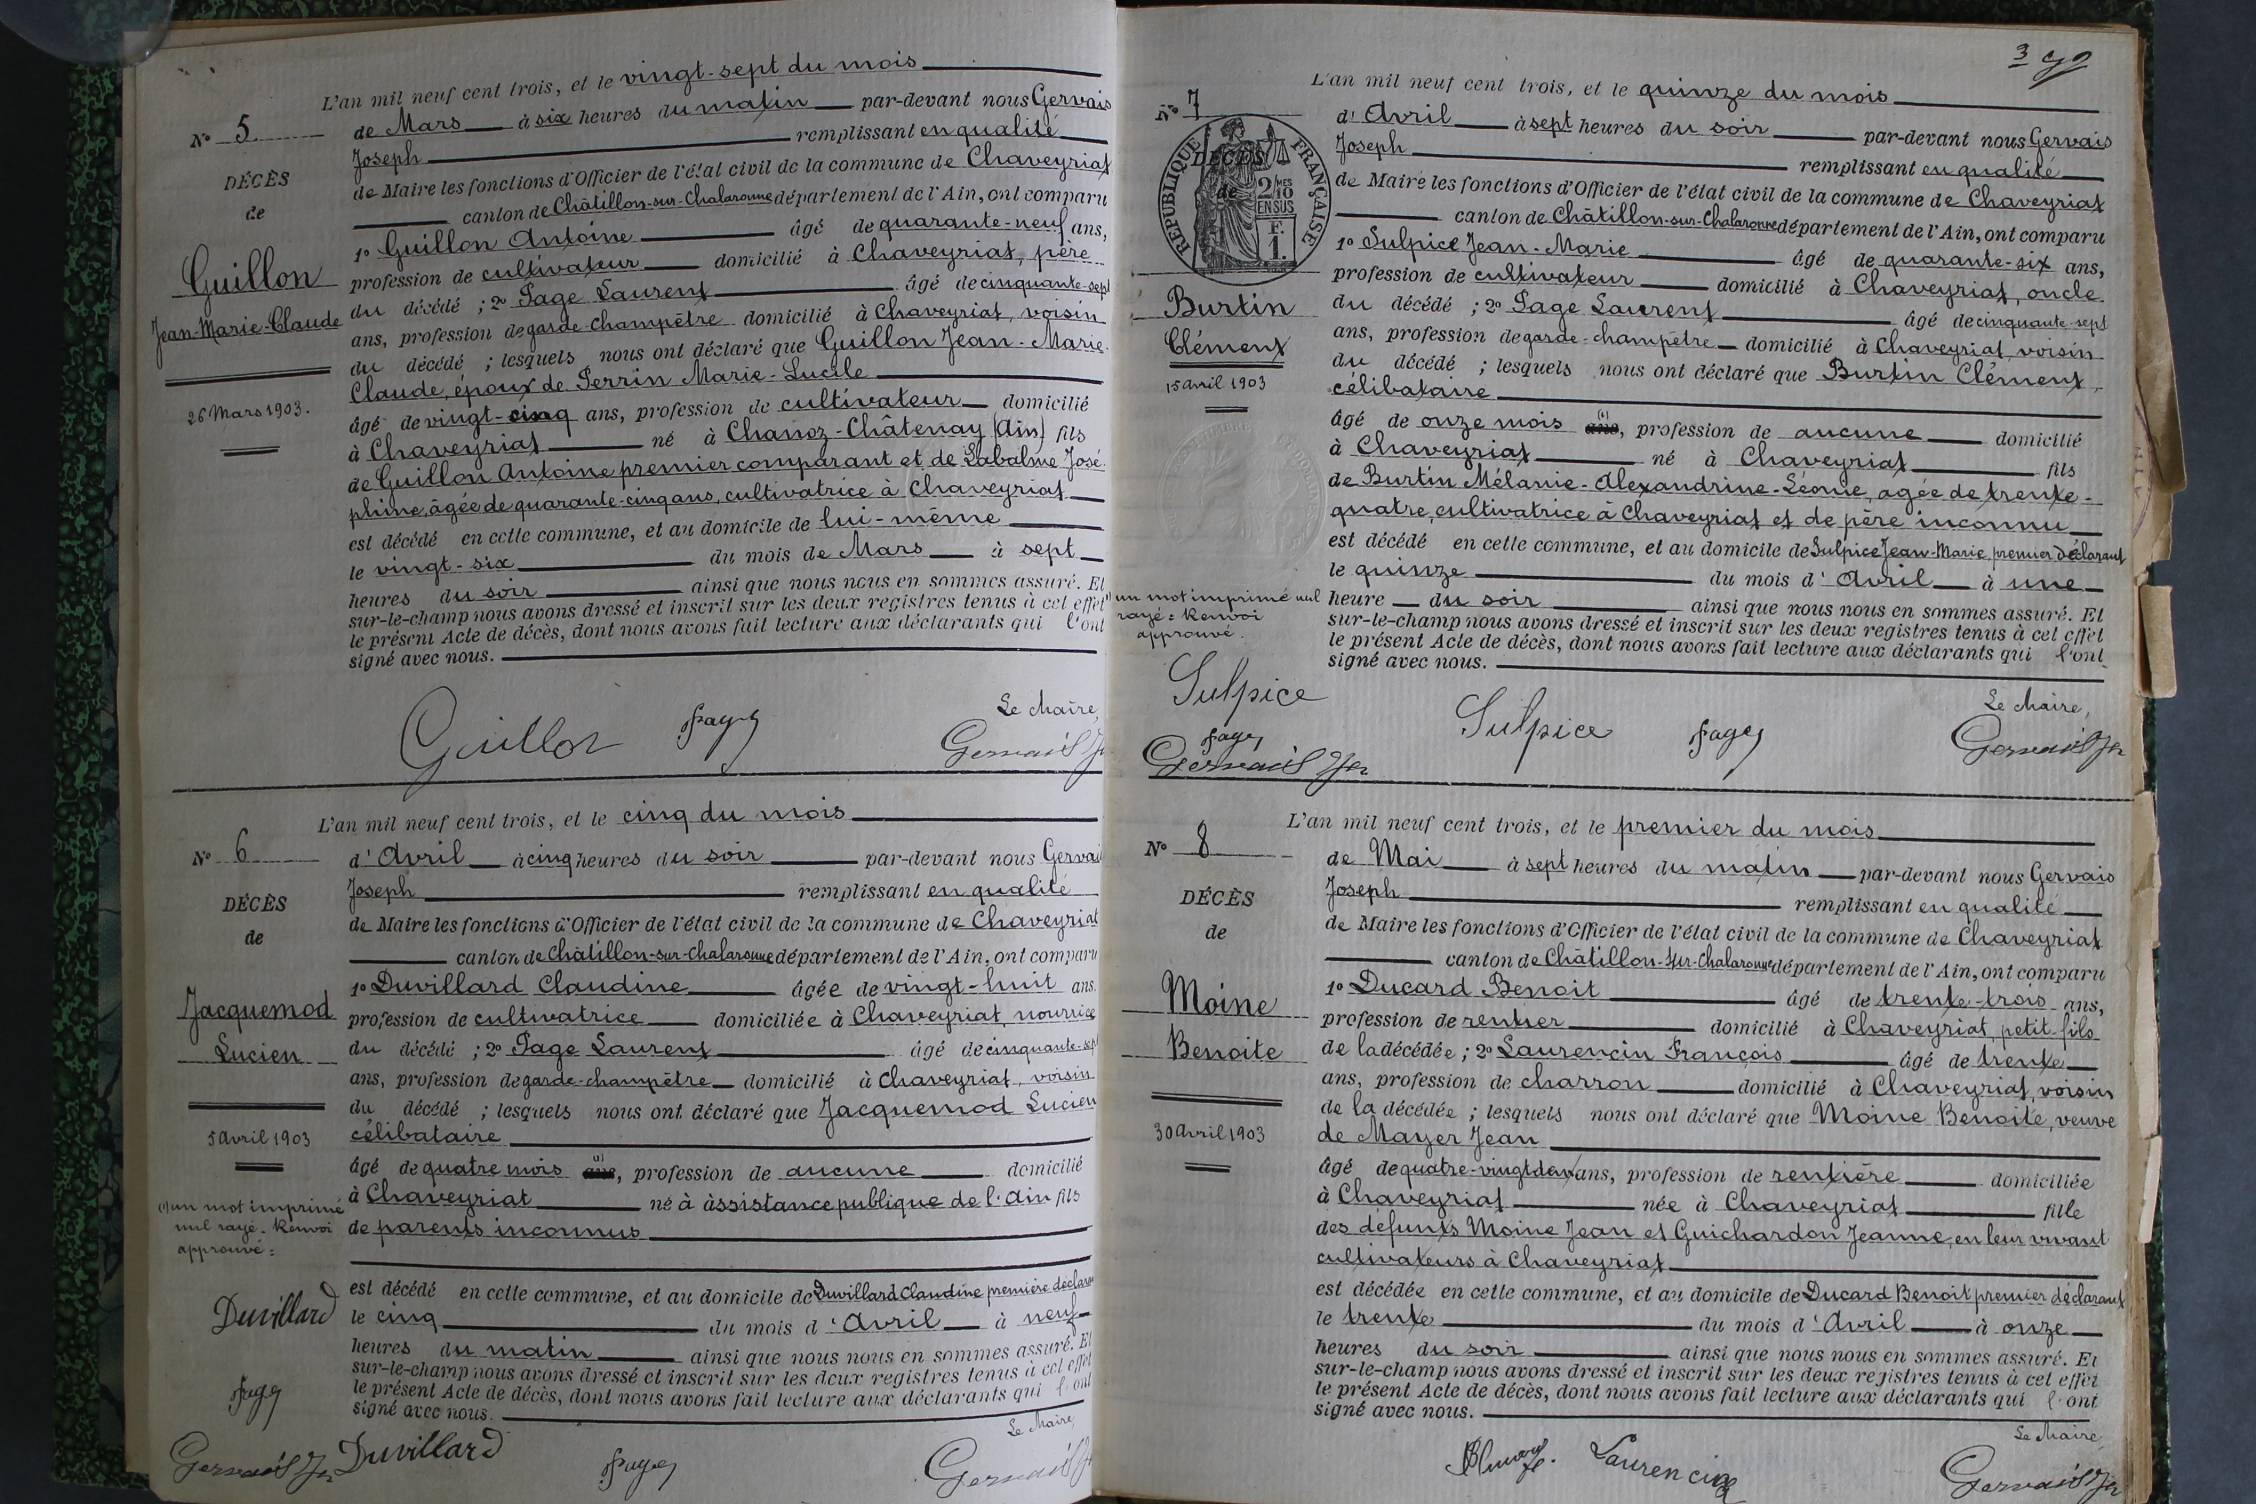 L'an mil neuf cent trois, et le vingt-sept du mois
de Mars à six heures du matin par-devant nous Gervais
Joseph remplissant en qualité
de Maire les fonctions d'Officier de l'état civil de la commune de Chaveyriat
canton de Châtillon-sur-Chalaronne département de l'Ain, ont comparu
1º Guillon Antoine âgé de quarante-neuf ans,
profession de cultivateur domicilié à Chaveyriat, père
du décédé ; 2º Page Laurent âgé de cinquante-sept
ans, profession de garde-champêtre domicilié à Chaveyriat, voisin
du décédé ; lesquels nous ont déclaré que Guillon Jean-Marie-
Claude, époux de Perrin Marie-Lucile
âgé de vingt-cinq ans, profession de cultivateur domicilié
à Chaveyriat né à Chanoz-Châtenay (Ain) fils
de Guillon Antoine premier comparant et de Labalme José-
phine, âgée de quarante-cinq ans, cultivatrice à Chaveyriat
est décédé en cette commune, et au domicile de lui-même
le vingt-six du mois de Mars à sept
heures du soir ainsi que nous nous en sommes assuré. Et
sur-le-champ nous avons dressé et inscrit sur les deux registres tenus à cet effet
le présent Acte de décès, dont nous avons fait lecture aux déclarants qui l'ont
signé avec nous.
Nº 5
DÉCÈS
de
Guillon
Jean-Marie-Claude
26 Mars 1903.
Le Maire,
Guillon Page Gervais Jh
L'an mil neuf cent trois, et le cinq du mois
d'Avril à cinq heures du soir par-devant nous Gervais
Joseph remplissant en qualité
de Maire les fonctions d'Officier de l'état civil de la commune de Chaveyriat
canton de Châtillon-sur-Chalaronne département de l'Ain, ont comparu
1º Duvillard Claudine âgée de vingt-huit ans.
profession de cultivatrice domiciliée à Chaveyriat, nourrice
du décédé ; 2º Page Laurent âgé de cinquante-sept
ans, profession de garde-champêtre domicilié à Chaveyriat, voisin
du décédé ; lesquels nous ont déclaré que Jacquemod Lucien
célibataire
âgé de quatre mois (1) ans, profession de aucune domicilié
à Chaveyriat né à àssistance publique de l'Ain fils
de parents inconnus
est décédé en cette commune, et au domicile de Duvillard Claudine première déclaran
le cinq du mois d'Avril à neuf
heures du matin ainsi que nous nous en sommes assuré. Et
sur-le-champ nous avons dressé et inscrit sur les deux registres tenus à cet effet
le présent Acte de décès, dont nous avons fait lecture aux déclarants qui l'ont
signé avec nous.
Nº 6
DÉCÈS
de
Jacquemod
Lucien
5 Avril 1903
(1) un mot imprimé
nul rayé. Renvoi
approuvé :
Duvillard
Page
Gervais Jh
Le Maire,
Duvillard Page Gervais Jh
3
L'an mil neuf cent trois, et le quinze du mois
d'Avril à sept heures du soir par-devant nous Gervais
Joseph remplissant en qualité
de Maire les fonctions d'Officier de l'état civil de la commune de Chaveyriat
canton de Châtillon-sur-Chalaronne département de l'Ain, ont comparu
1º Sulpice Jean-Marie âgé de quarante-six ans,
profession de cultivateur domicilié à Chaveyriat, oncle
du décédé ; 2º Page Laurent âgé de cinquante-sept
ans, profession de garde-champêtre domicilié à Chaveyriat, voisin
du décédé ; lesquels nous ont déclaré que Burtin Clément,
célibataire
âgé de onze mois (1) ans, profession de aucune domicilié
à Chaveyriat né à Chaveyriat fils
de Burtin Mélanie-Alexandrine-Léonie, agée de trente-
quatre, cultivatrice à Chaveyriat et de père inconnu
est décédé en cette commune, et au domicile de Sulpice Jean-Marie premier déclarant
le quinze du mois d'Avril à une
heure du soir ainsi que nous nous en sommes assuré. Et
sur-le-champ nous avons dressé et inscrit sur les deux registres tenus à cet effet
le présent Acte de décès, dont nous avons fait lecture aux déclarants qui l'ont
signé avec nous.
Nº 7
RÉPUBLIQUE FRANÇAISE
DÉCÈS
de
2/10
MES
EN SUS
F.
1.
Burtin
Clément
15 avril 1903
(1) un mot imprimé nul
rayé : Renvoi
approuvé.
Sulpice
Page
Gervais Jh
Le Maire,
Sulpice Page Gervais Jh
L'an mil neuf cent trois, et le premier du mois
de Mai à sept heures du matin par-devant nous Gervais
Joseph remplissant en qualité
de Maire les fonctions d'Officier de l'état civil de la commune de Chaveyriat
canton de Châtillon-sur-Chalaronne département de l'Ain, ont comparu
1º Ducard Benoit âgé de trente-trois ans,
profession de rentier domicilié à Chaveyriat, petit-fils
de la décédée ; 2º Laurencin François âgé de trente
ans, profession de charron domicilié à Chaveyriat, voisin
de la décédée ; lesquels nous ont déclaré que Moine Benoite, veuve
de Mayer Jean
âgé de quatre-vingt deux ans, profession de rentière domiciliée
à Chaveyriat née à Chaveyriat fille
des défunts Moine Jean et Guichardon Jeanne, en leur vivant
cultivateurs à Chaveyriat
est décédée en cette commune, et au domicile de Ducard Benoit premier déclarant
le trente du mois d'Avril à onze
heures du soir ainsi que nous nous en sommes assuré. Et
sur-le-champ nous avons dressé et inscrit sur les deux registres tenus à cet effet
le présent Acte de décès, dont nous avons fait lecture aux déclarants qui l'ont
signé avec nous.
Nº 8
DÉCÈS
de
Moine
Benoite
30 Avril 1903
Le Maire,
Laurencin Gervais Jh